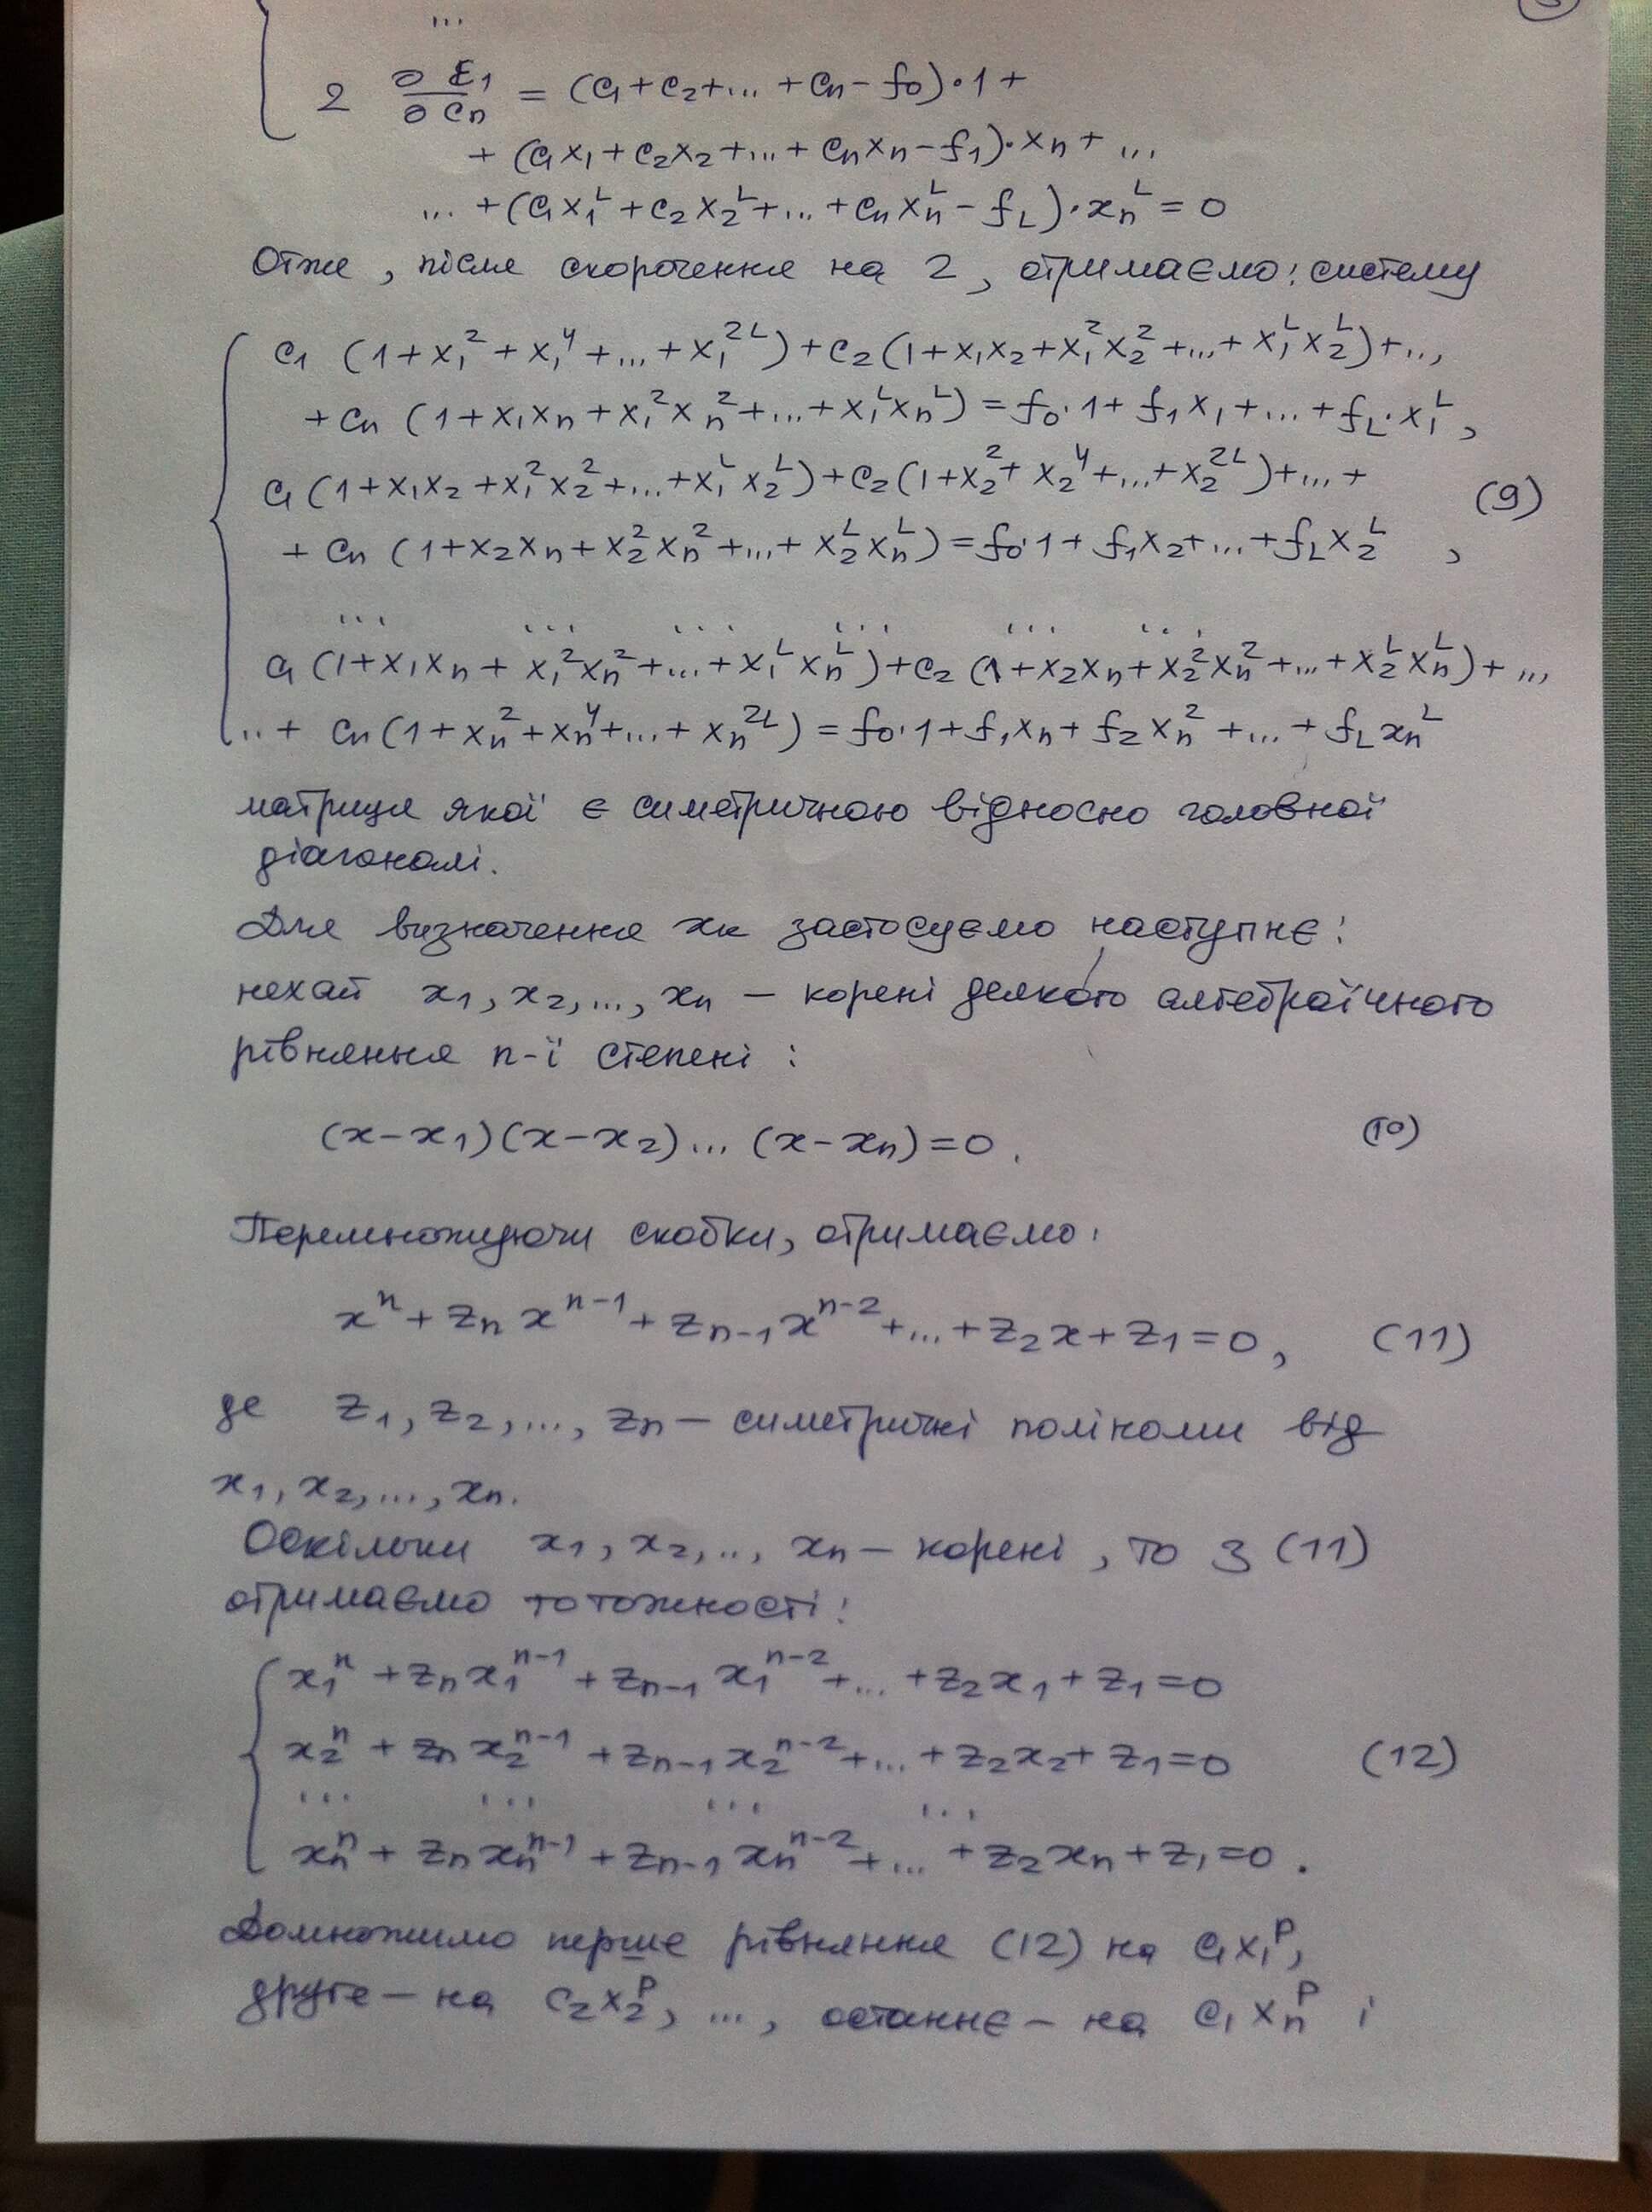 ...
2 ∂ε₁/∂cₙ = (c₁+c₂+...+cₙ−f₀)·1+
+ (c₁x₁+c₂x₂+...+cₙxₙ−f₁)·xₙ+...
...+(c₁x₁ᴸ+c₂x₂ᴸ+...+cₙxₙᴸ−f_L)·xₙᴸ=0
Отже, після скорочення на 2, отримаємо: систему
c₁ (1+x₁²+x₁⁴+...+x₁²ᴸ)+c₂(1+x₁x₂+x₁²x₂²+...+x₁ᴸx₂ᴸ)+...
+cₙ (1+x₁xₙ+x₁²xₙ²+...+x₁ᴸxₙᴸ)=f₀·1+f₁x₁+...+f_L·x₁ᴸ,
c₁(1+x₁x₂+x₁²x₂²+...+x₁ᴸx₂ᴸ)+c₂(1+x₂²+x₂⁴+...+x₂²ᴸ)+...+ (9)
+ cₙ (1+x₂xₙ+x₂²xₙ²+...+x₂ᴸxₙᴸ)=f₀·1+f₁x₂+...+f_Lx₂ᴸ ,
... ... ... ... ... ...
c₁(1+x₁xₙ+x₁²xₙ²+...+x₁ᴸxₙᴸ)+c₂(1+x₂xₙ+x₂²xₙ²+...+x₂ᴸxₙᴸ)+...
..+ cₙ(1+xₙ²+xₙ⁴+...+xₙ²ᴸ)=f₀·1+f₁xₙ+f₂xₙ²+...+f_Lxₙᴸ
матриця якої є симетричною відносно головної
діагоналі.
Для визначення xₖ застосуємо наступнє:
нехай x₁,x₂,...,xₙ – корені деякого алгебраїчного
рівняння n-ї степені :
(x−x₁)(x−x₂)...(x−xₙ)=0. (10)
Перемножуючи скобки, отримаємо:
xⁿ+zₙxⁿ⁻¹+zₙ₋₁xⁿ⁻²+...+z₂x+z₁=0, (11)
де z₁,z₂,...,zₙ – симетричні поліноми від
x₁,x₂,...,xₙ.
Оскільки x₁,x₂,..,xₙ – корені, то з (11)
отримаємо тотожності:
x₁ⁿ+zₙx₁ⁿ⁻¹+zₙ₋₁x₁ⁿ⁻²+...+z₂x₁+z₁=0
x₂ⁿ+zₙx₂ⁿ⁻¹+zₙ₋₁x₂ⁿ⁻²+...+z₂x₂+z₁=0 (12)
... ... ... ...
xₙⁿ+zₙxₙⁿ⁻¹+zₙ₋₁xₙⁿ⁻²+...+z₂xₙ+z₁=0.
Домножимо перше рівняння (12) на c₁x₁ᵖ,
друге – на c₂x₂ᵖ, ..., останнє – на c₁xₙᵖ і